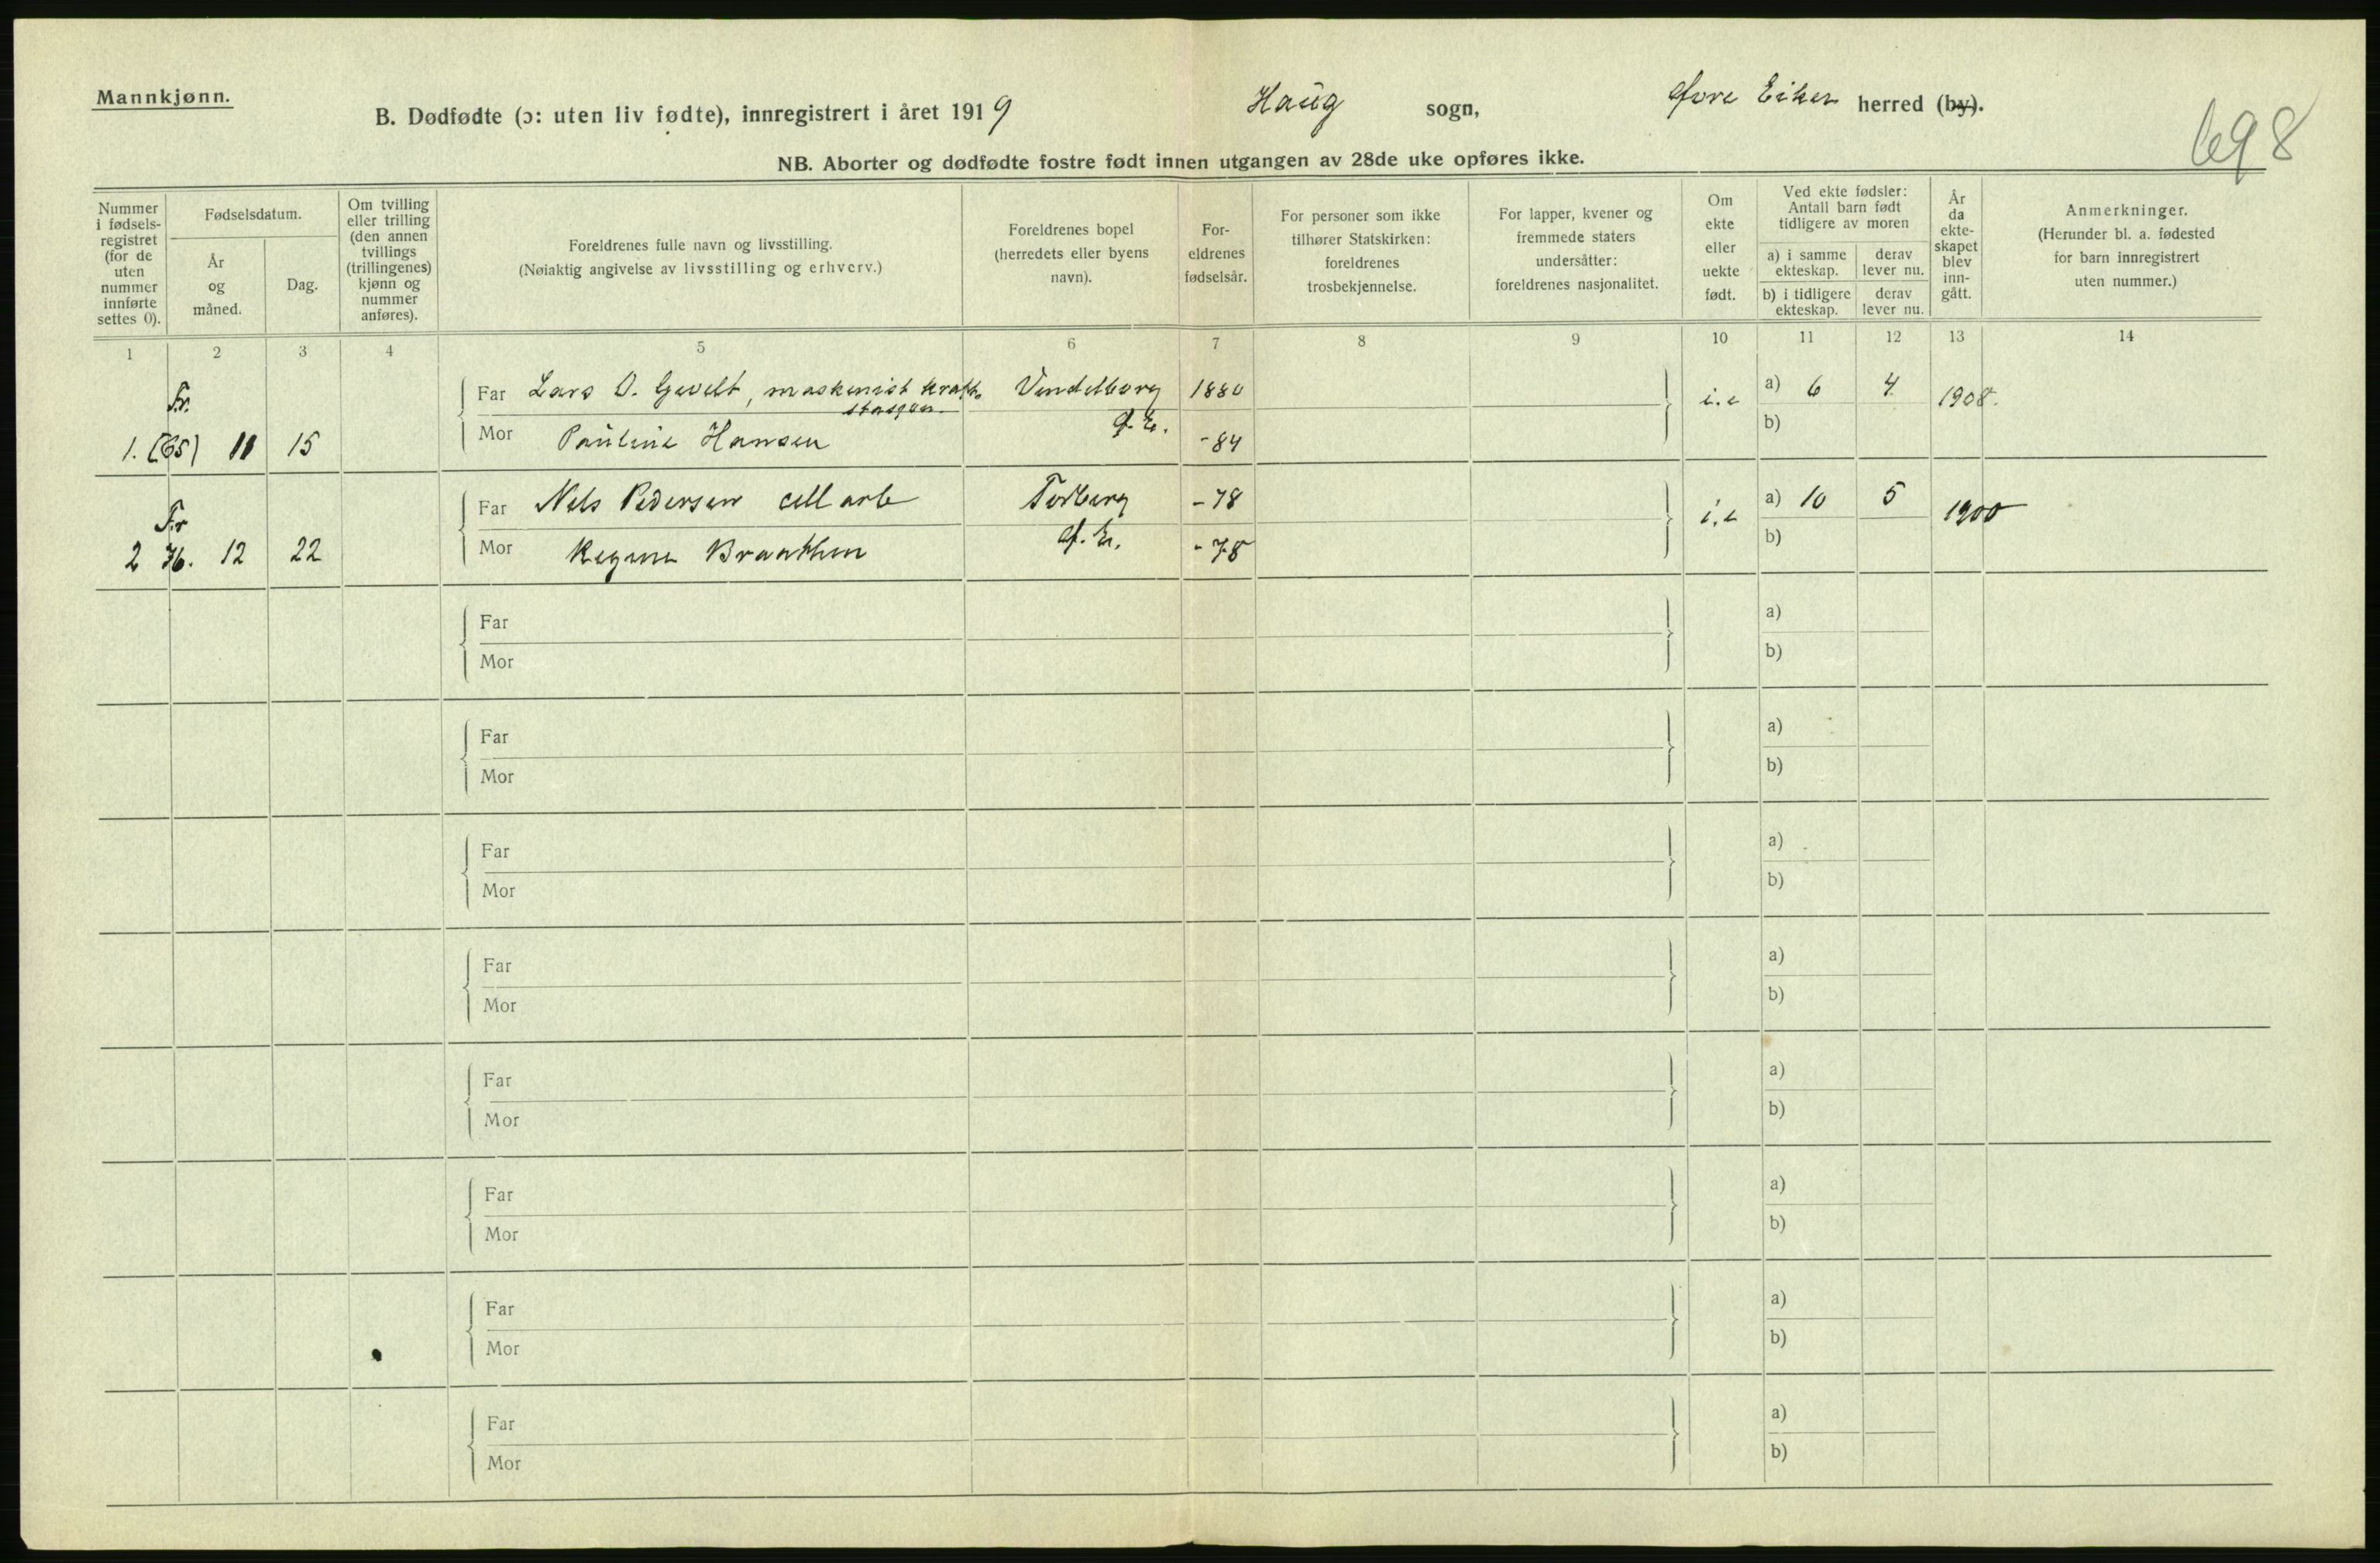 Mannkjønn.
B. Dødfødte (ɔ: uten liv fødte), innregistrert i året 1919 Haug sogn, Øvre Eiker herred (by).
698
NB. Aborter og dødfødte fostre født innen utgangen av 28de uke opføres ikke.
Nummer
i fødsels-
registret
(for de
uten
nummer
innførte
settes 0).
Fødselsdatum.
År
og
måned.
Dag.
Om tvilling
eller trilling
(den annen
tvillings
(trillingenes)
kjønn og
nummer
anføres).
Foreldrenes fulle navn og livsstilling.
(Nøiaktig angivelse av livsstilling og erhverv.)
Foreldrenes bopel
(herredets eller byens
navn).
For-
eldrenes
fødselsår.
For personer som ikke
tilhører Statskirken:
foreldrenes
trosbekjennelse.
For lapper, kvener og
fremmede staters
undersåtter:
foreldrenes nasjonalitet.
Om
ekte
eller
uekte
født.
Ved ekte fødsler:
Antall barn født
tidligere av moren
a) i samme
ekteskap.
derav
lever nu.
b) i tidligere
ekteskap.
derav
lever nu.
År
da
ekte-
skapet
blev
inn-
gått.
Anmerkninger.
(Herunder bl. a. fødested
for barn innregistrert
uten nummer.)
1 2 3 4 5 6 7 8 9 10 11 12 13 14
Fr.
1. (65) 11 15
Far Lars O. maskinist kraft-
stasjon
1880
Mor Pauline Hansen
Ø. E.
-84
a) 6 4 1908.
b)
Fr
2 76. 12 22
Far Nils Pedersen cell arb
-78
Mor Regine Braathen
Ø. E.
-78
a) 10 5 1900
b)
Far
Mor
a)
b)
Far
Mor
a)
b)
Far
Mor
a)
b)
Far
Mor
a)
b)
Far
Mor
a)
b)
Far
Mor
a)
b)
Far
Mor
a)
b)
Far
Mor
a)
b)